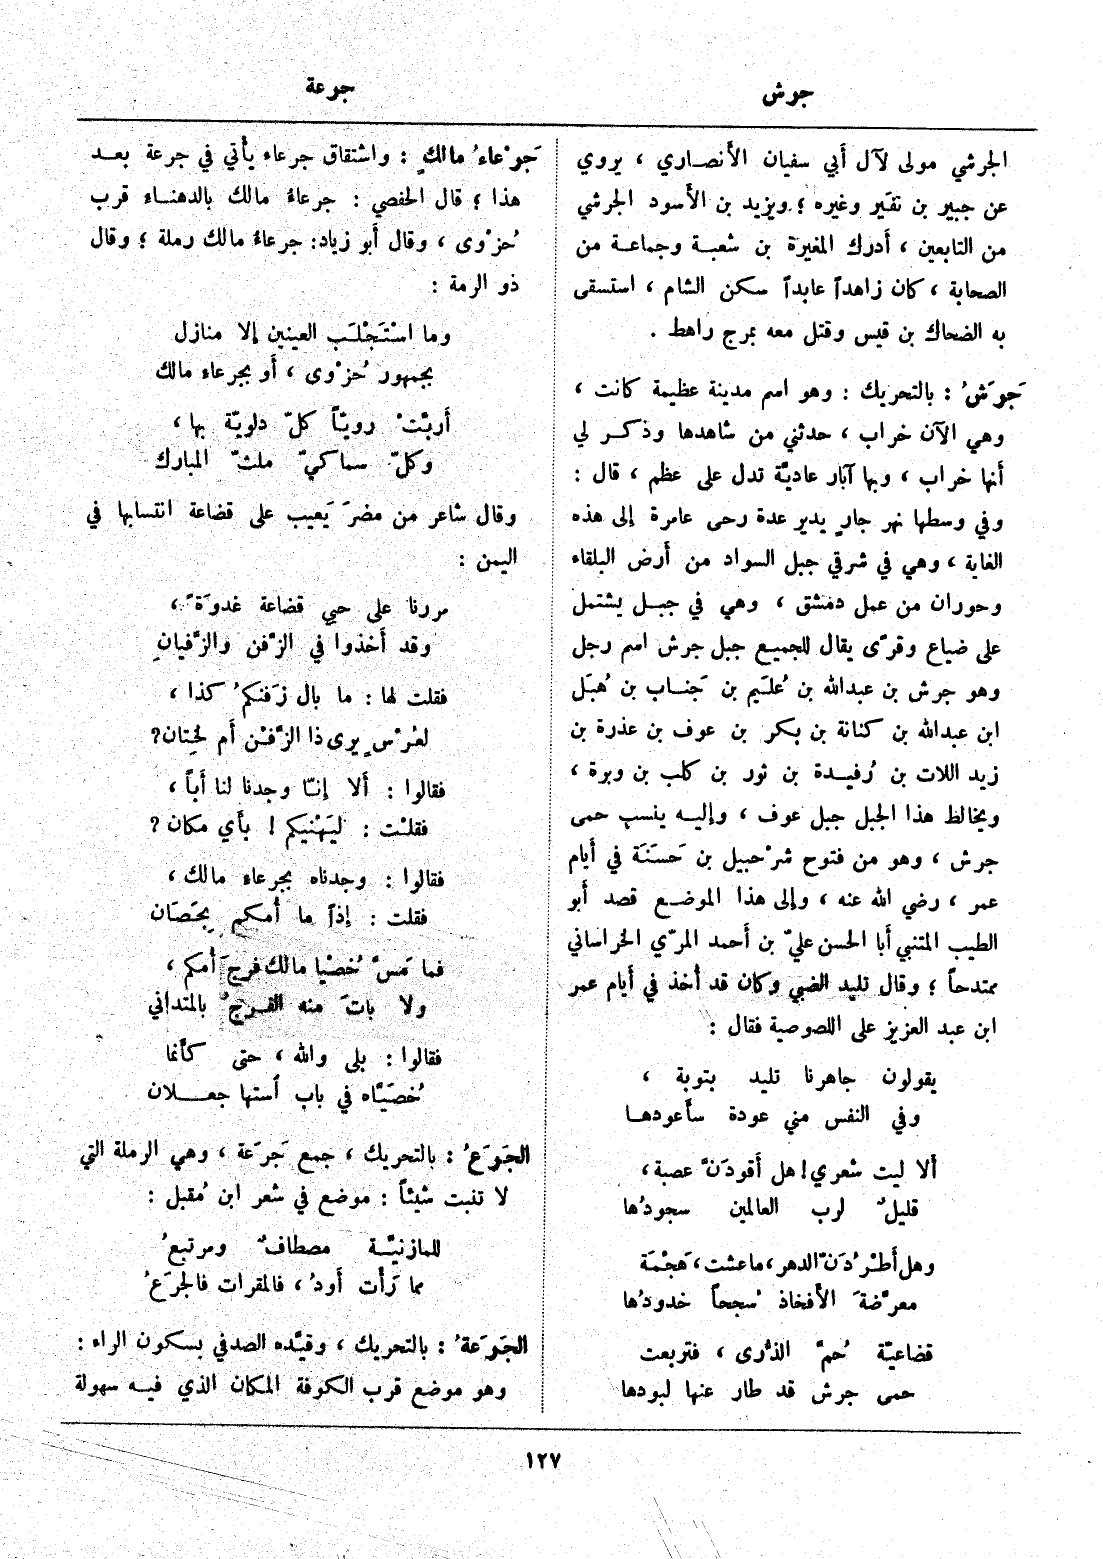 جرش
جرعة
الجرشي مولى لآل أبي سفيان الأنصاري ، يروي
عن جبير بن نفير وغيره ؛ ويزيد بن الأسود الجرشي
من التابعين ، أدرك المغيرة بن شعبة وجماعة من
الصحابة ، كان زاهداً عابداً سكن الشام ، استسقى
به الضحاك بن قيس وقتل معه بمرج راهط .
جَرَشُ : بالتحريك : وهو اسم مدينة عظيمة كانت ،
وهي الآن خراب ، حدثني من شاهدها وذكر لي
أنها خراب ، وبها آبار عاديّة تدل على عظم ، قال :
وفي وسطها نهر جارٍ يدير عدة رحى عامرة إلى هذه
الغاية ، وهي في شرقي جبل السواد من أرض البلقاء
وحوران من عمل دمشق ، وهي في جبل يشتمل
على ضياع وقرًى يقال للجميع جبل جرش اسم رجل
وهو جرش بن عبدالله بن عُلَيم بن جَناب بن هُبَل
ابن عبدالله بن كنانة بن بكر بن عوف بن عذرة بن
زيد اللات بن رُفيدة بن ثور بن كلب بن وبرة ،
ويخالط هذا الجبل جبل عوف ، وإليه ينسب حمى
جرش ، وهو من فتوح شرْحبيل بن حَسَنَة في أيام
عمر ، رضي الله عنه ، وإلى هذا الموضع قصد أبو
الطيب المتنبي أبا الحسن عليّ بن أحمد المرّي الخراساني
ممتدحاً ؛ وقال تليد الضبي وكان قد أُخذ في أيام عمر
ابن عبد العزيز على اللصوصية فقال :
يقولون جاهرنا تليد بتوبة ،
وفي النفس مني عودة سأعودها
ألا ليت شعري! هل أقودَنَّ عصبة ،
قليلٌ لرب العالمين سجودُها
وهل أَطْرُدَنّ الدهر ، ما عشت ، هَجْمَة
معرَّضةَ الأفخاذ سُجحاً خدودُها
قضاعيّة حُمَّ الذُّرى ، فتربعت
حمى جرش قد طار عنها لبودها
جَرْعاءُ مالكٍ : واشتقاق جرعاء يأتي في جرعة بعد
هذا ؛ قال الحفصي : جرعاءُ مالك بالدهناء قرب
حُزْوى ، وقال أبو زياد: جرعاءُ مالك رملة ؛ وقال
ذو الرمة :
وما اسْتَجْلَب العينين إلا منازل
بجمهور حُزْوى ، أو بجرعاء مالك
أربّتْ رويّاً كلّ دلويّة بها ،
وكلّ سماكيّ ملثّ المبارك
وقال شاعر من مضرَ يَعيب على قضاعة انتسابها في
اليمن :
مررنا على حيي قضاعة غدوَةً ،
وقد أخذوا في الزَّفن والزَّفيانِ
فقلت لها : ما بال زَفنكمُ كذا ،
لعُرْسٍ يرى ذا الزَّفْن أم لختان؟
فقالوا : ألا إنّا وجدنا لنا أباً ،
فقلت : ليَهْنيكم ! بأي مكان ؟
فقالوا : وجدناه بجرعاء مالك ،
فقلت : إذاً ما أمكم بحَصَان
فما مَسَّ خُصْيا مالك فرجَ أمكم ،
ولا باتَ منه الفرجُ بالمتداني
فقالوا : بلى والله ، حتى كأنما
خُصَيَّاه في باب أستها جعلان
الجَرَعُ : بالتحريك ، جمع جَرَعة ، وهي الرملة التي
لا تنبت شيئاً : موضع في شعر ابن مُقبل :
للمازنيَّة مصطافٌ ومرتبعُ
مما رَأت أودُ ، فالمقرات فالجرَعُ
الجَرَعةُ : بالتحريك ، وقيَّده الصدفي بسكون الراء :
وهو موضع قرب الكوفة المكان الذي فيه سهولة
١٢٧